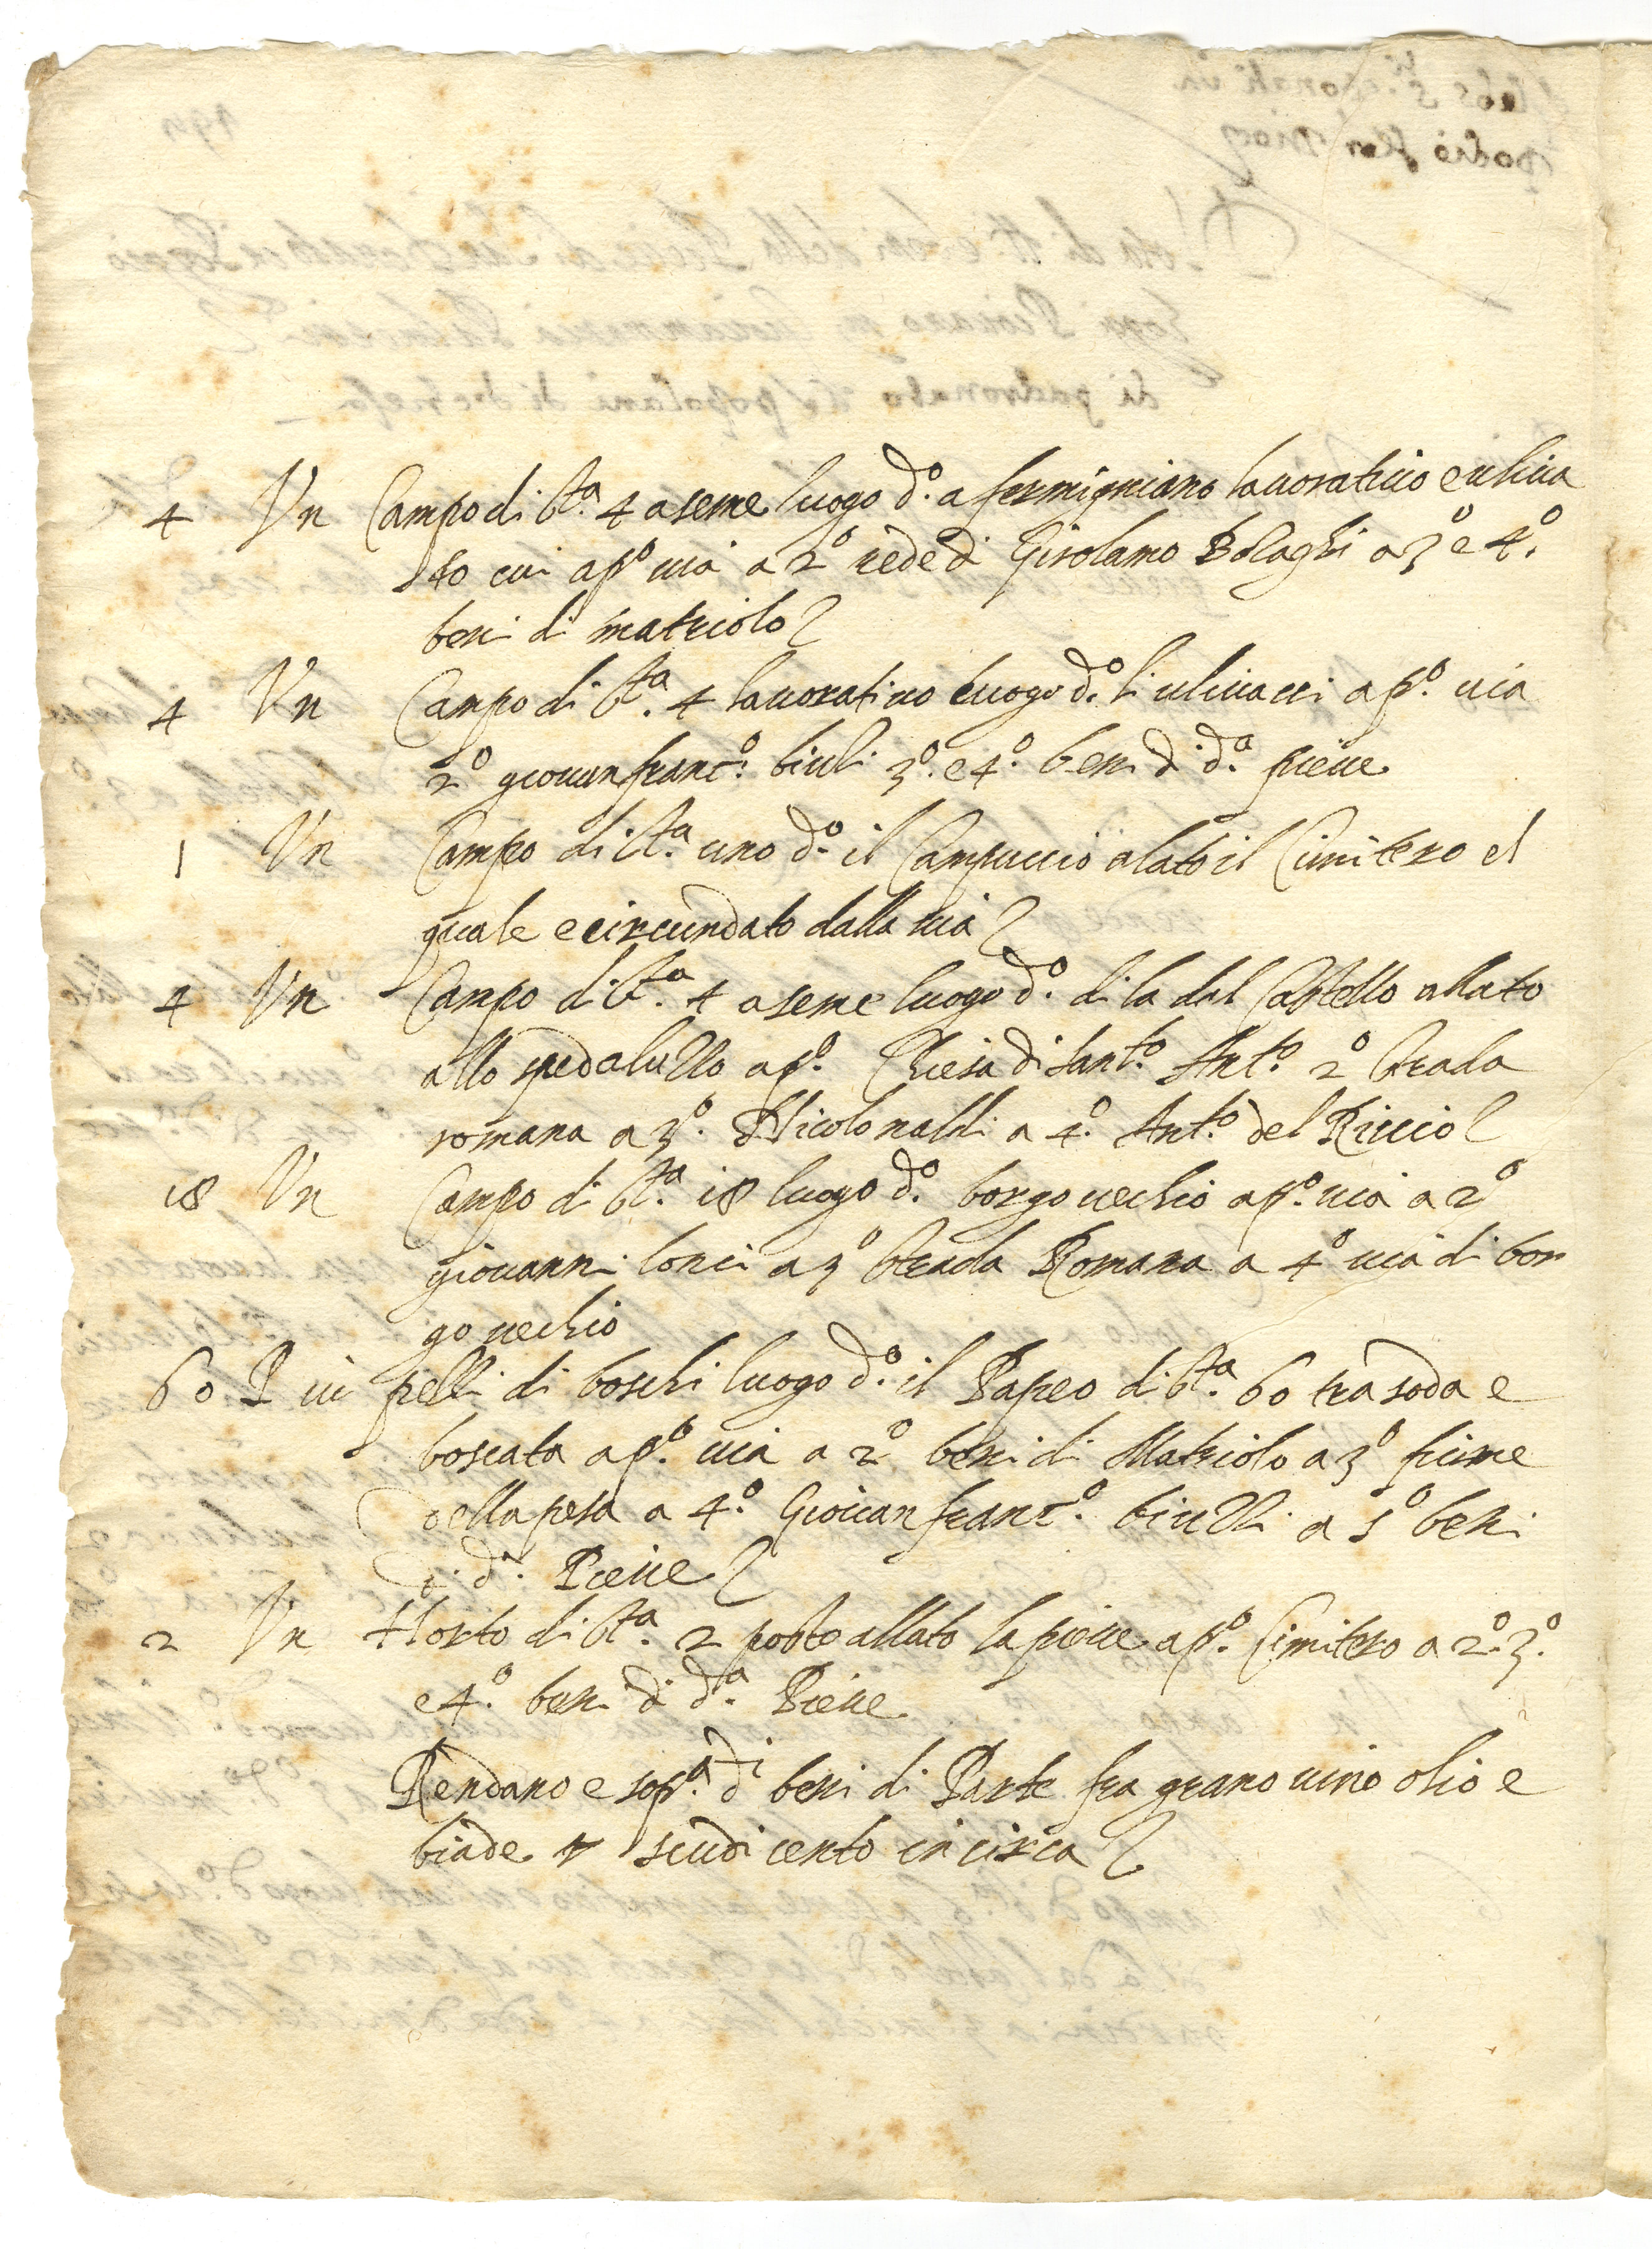 4 Vn Campo di sta. 4 a seme luogo do. a fermigniano lauoratiuo e uliua
to cui a po uia a 2o rede di Girolamo Bolaghi a 3o e 4o.
beni di matriolo
4 Vn Campo di sta. 4 lauoratiuo luogo do. li uliuacci a po. uia
2o giouanfranco. biuli 3o. e 4o. beni di da. pieue
1 Vn Campo di sta. uno do. il Campuccio alato il Cimitero el
quale e circundato dalla uia
4 Vn Campo di sta. 4 a seme luogo do. di la dal Castello allato
allo spedaluzzo a po. Chiesa di santo. Anto. 2o strada
romana a 3o. Nicolo naldi a 4o. Anto. del Riccio
18 Vn Campo di sta. 18 luogo do. borgo uechio a po. uia a 2o
giouanni lonci a 3o strada Romana a 4o uia di bor
go uechio
60 P iu pezzi di boschi luogo do. il Papeo di sta. 60 tra soda e
boscata a po. uia a 2o beni di Matriolo a 3o fiume
della pesa a 4o. Giouanfranco. biuzzi a 5o beni
di da. Pieue
2 Vn Horto di sta. 2 posto allato la pieue a po. Cimitero a 2o. 3o.
e 4o. beni di da. Pieue
Rendano e sopa. di beni di Parte fra grano uino olio e
biade scudi cento in circa